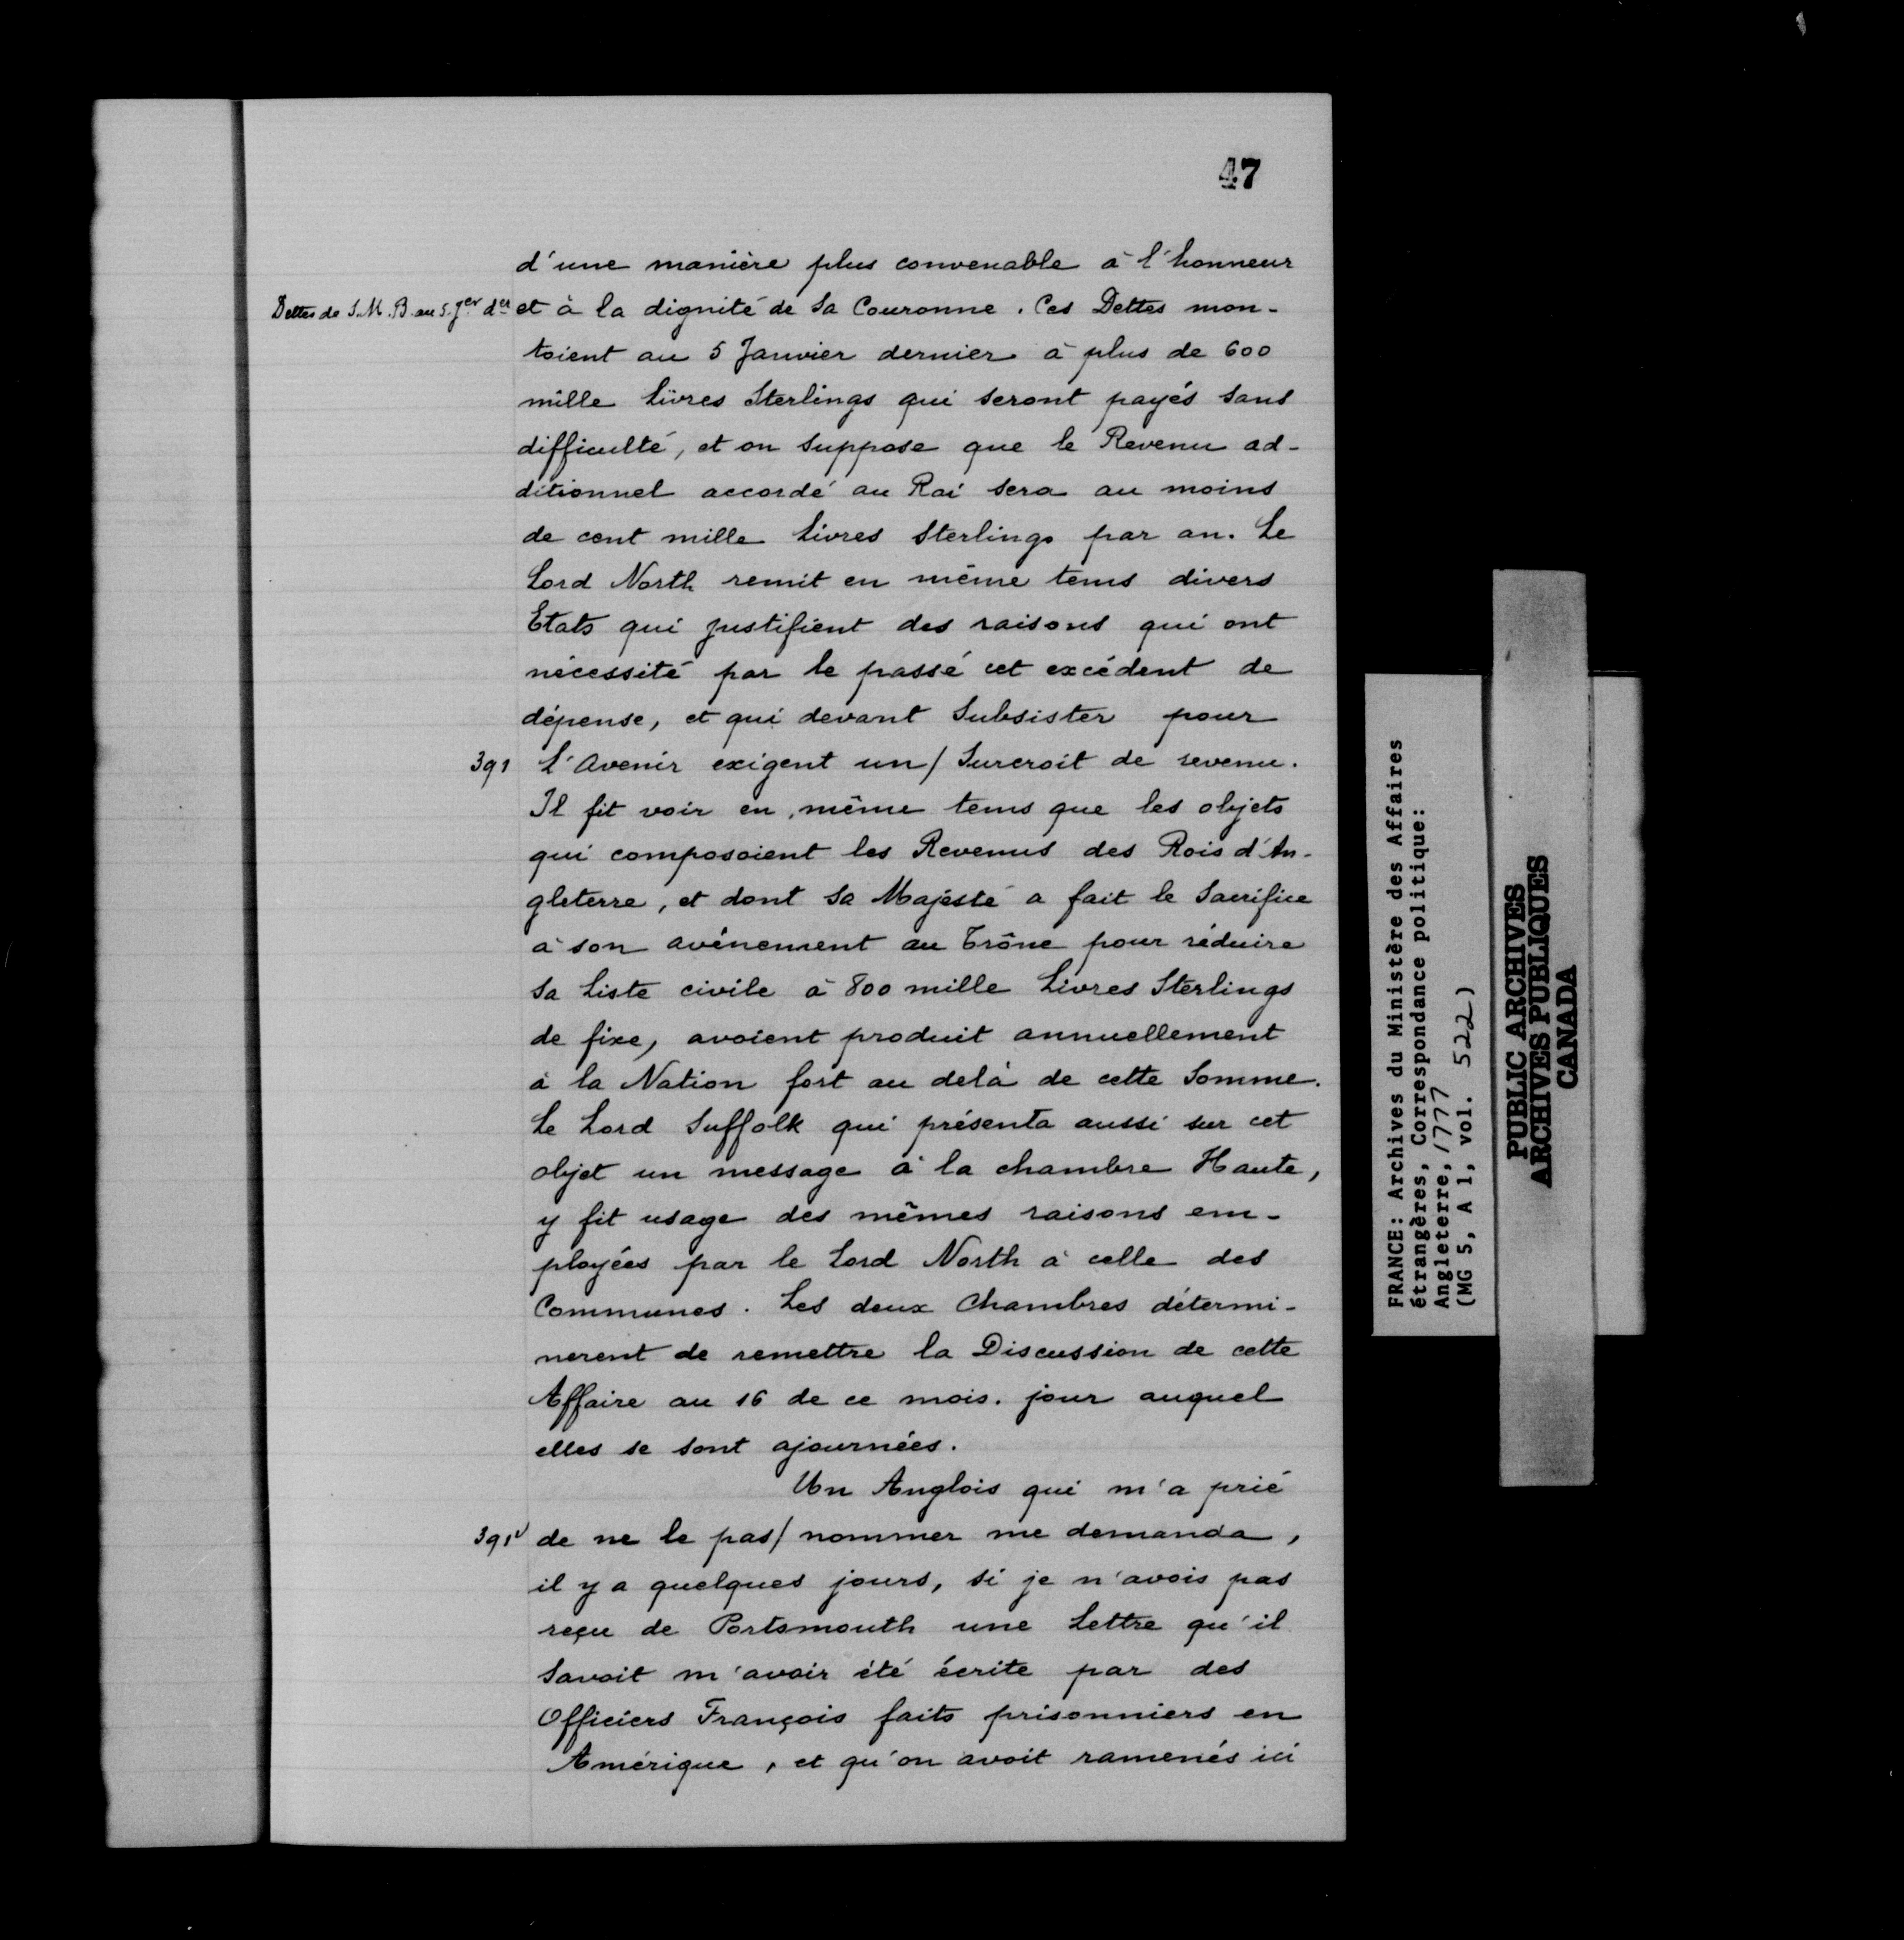 47
d'une manière plus convenable à l'honneur
Dettes de S. M. B. au 5. Jer der
et à la dignité de sa Couronne. Ces Dettes mon-
toient au 5 Janvier dernier à plus de 600
mille livres Sterlings qui seront payés sans
difficulté, et on suppose que le Revenu ad-
ditionnel accordé au Roi sera au moins
de cent mille livres Sterlings par an. Le
Lord North remit en même tems divers
Etats qui justifient des raisons qui ont
nécessité par le passé cet excédent de
dépense, et qui devant Subsister pour
391 L'Avenir exigent un / Surcroit de revenu.
Il fit voir en même tems que les objets
qui composoient les Revenus des Rois d'An-
gleterre, et dont Sa Majesté a fait le Sacrifice
à son avénement au Trône pour réduire
sa Liste civile à 800 mille Livres Sterlings
de fixe, avoient produit annuellement
à la Nation fort au delà de cette Somme.
Le Lord Suffolk qui présenta aussi sur cet
objet un message à la chambre Haute,
y fit usage des mêmes raisons em-
ployées par le Lord North à celle des
Communes. Les deux Chambres détermi-
nerent de remettre la Discussion de cette
Affaire au 16 de ce mois. jour auquel
elles se sont ajournées.
Un Anglois qui m'a prié
391v de ne le pas / nommer me demanda,
il y a quelques jours, si je n'avois pas
reçu de Portsmouth une Lettre qu'il
Savoit m'avoir été écrite par des
Officiers François faits prisonniers en
Amérique, et qu'on avoit ramenés ici
FRANCE: Archives du Ministère des Affaires
étrangères, Correspondance politique:
Angleterre, 1777
(MG 5, A 1, vol. 522)
PUBLIC ARCHIVES
ARCHIVES PUBLIQUES
CANADA